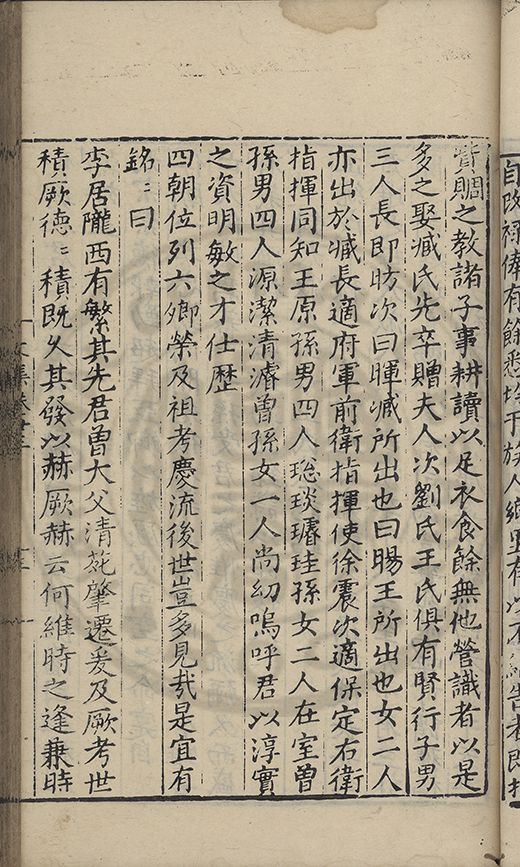 自改禄俸有餘悉均于族人鄉里有以不給告者即
賁賙之教諸子事耕讀以足衣食餘無他營識者以是
多之娶臧氏先卒贈夫人次劉氏王氏俱有賢行子男
三人長即昉次曰暉臧所出也曰暘王所出也女二人
亦出於臧長適府軍前衛指揮使徐震次適保定右衛
指揮同知王原孫男四人璁琰璿珪孫女二人在室曽
孫男四人源潔清濬曽孫女一人尚幼嗚呼君以淳實
之資明敏之才仕歷
四朝位列六卿榮及祖考慶流後世豈多見㢤是宜有
銘〻曰
李居隴西有繁其先君曽大父清苑肇遷爰及厥考世
積厥德〻積既久其發以赫厥赫云何維時之逢兼時
文集卷廿三